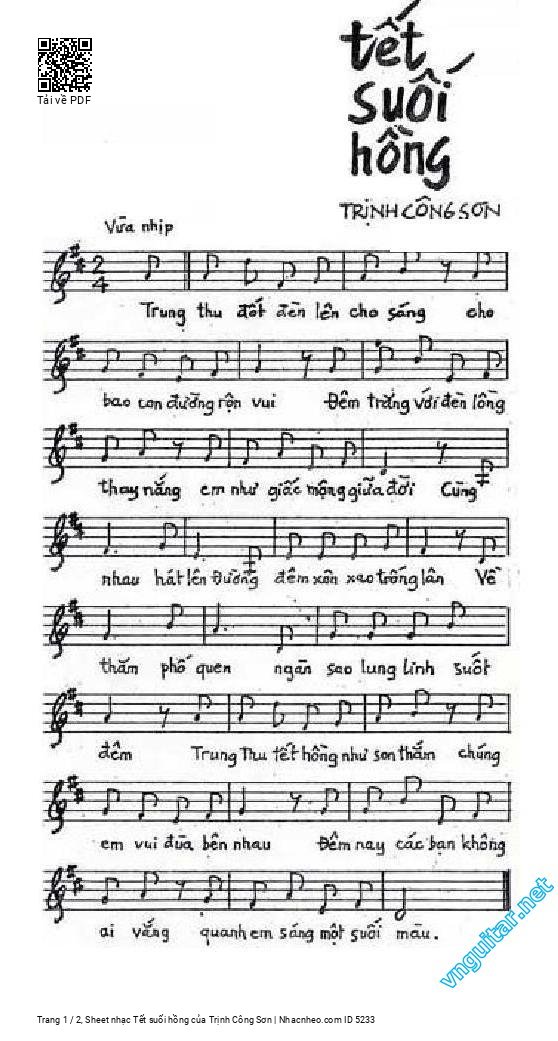 Tải về PDF
tết
suối
hồng
TRỊNH CÔNG SƠN
Vừa nhịp
2
4
Trung thu đốt đèn lên cho sáng cho
bao con đường rộn vui Đêm trăng với đèn lồng
thay nắng em như giấc mộng giữa đời Cùng
nhau hát lên Đường đêm xôn xao trống lân Về
thăm phố quen ngàn sao lung linh suốt
đêm Trung Thu tết hồng như son thắm chúng
em vui đùa bên nhau Đêm nay các bạn không
ai vắng quanh em sáng một suối màu.
vnguitar.net
Trang 1 / 2, Sheet nhạc Tết suối hồng của Trịnh Công Sơn | Nhacnheo.com ID 5233